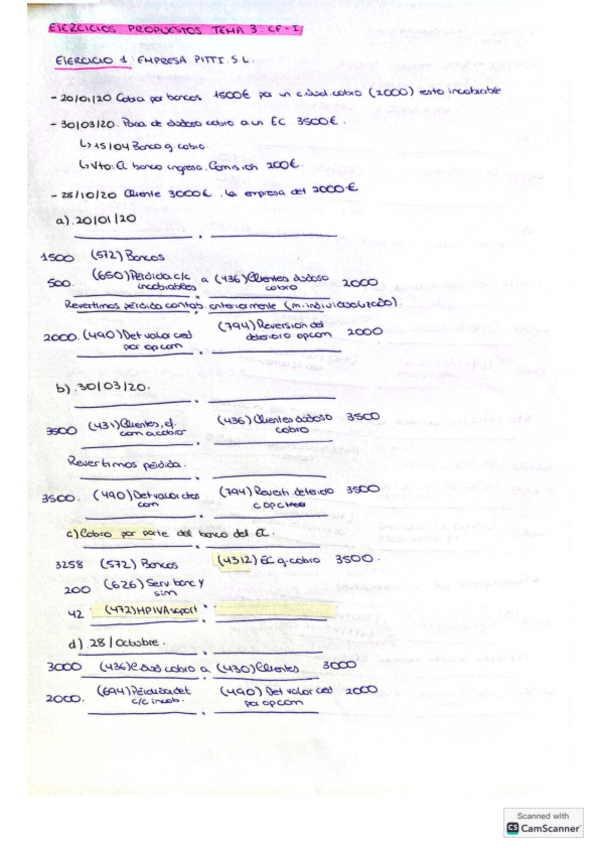 EJERCICIOS PROPUESTOS TEMA 3: CF-I
EJERCICIO 1: EMPRESA PITTI. S.L.
- 20/01/20 Cobra por bancos 1500€ por un c.dud.cobro (2000) resto incobrable
- 30/03/20. Pasa de dudoso cobro a un EC 3500€.
↳ 15/04 Banco g. cobro.
↳ Vto: El banco ingresa. Comisión 200€.
- 28/10/20 Cliente 3000€. La empresa det 2000€
a). 20/01/20
1500 (572) Bancos
500. (650) Pérdida c/c incobrables a (436) Clientes dudoso cobro 2000
Revertimos pérdida contab. anteriormente (m. individualizado).
2000. (490) Det valor cred por op com (794) Reversión del deterioro op com 2000
b). 30/03/20.
3500 (431) Clientes, ef. com a cobrar (436) Clientes dudoso cobro 3500
Revertimos pérdida.
3500. (490) Det valor ctes com (794) Revert. deterioro 3500
c) Cobro por parte del banco del EC.
3258 (572) Bancos (4312) EC g. cobro 3500.
200 (626) Serv banc y sim
42 (472) HP IVA soport
d) 28/Octubre.
3000 (436) C dud cobro a (430) Clientes 3000
2000. (694) Pérdida det c/c incob. (490) Det valor cred por op com 2000
Scanned with
CS CamScanner